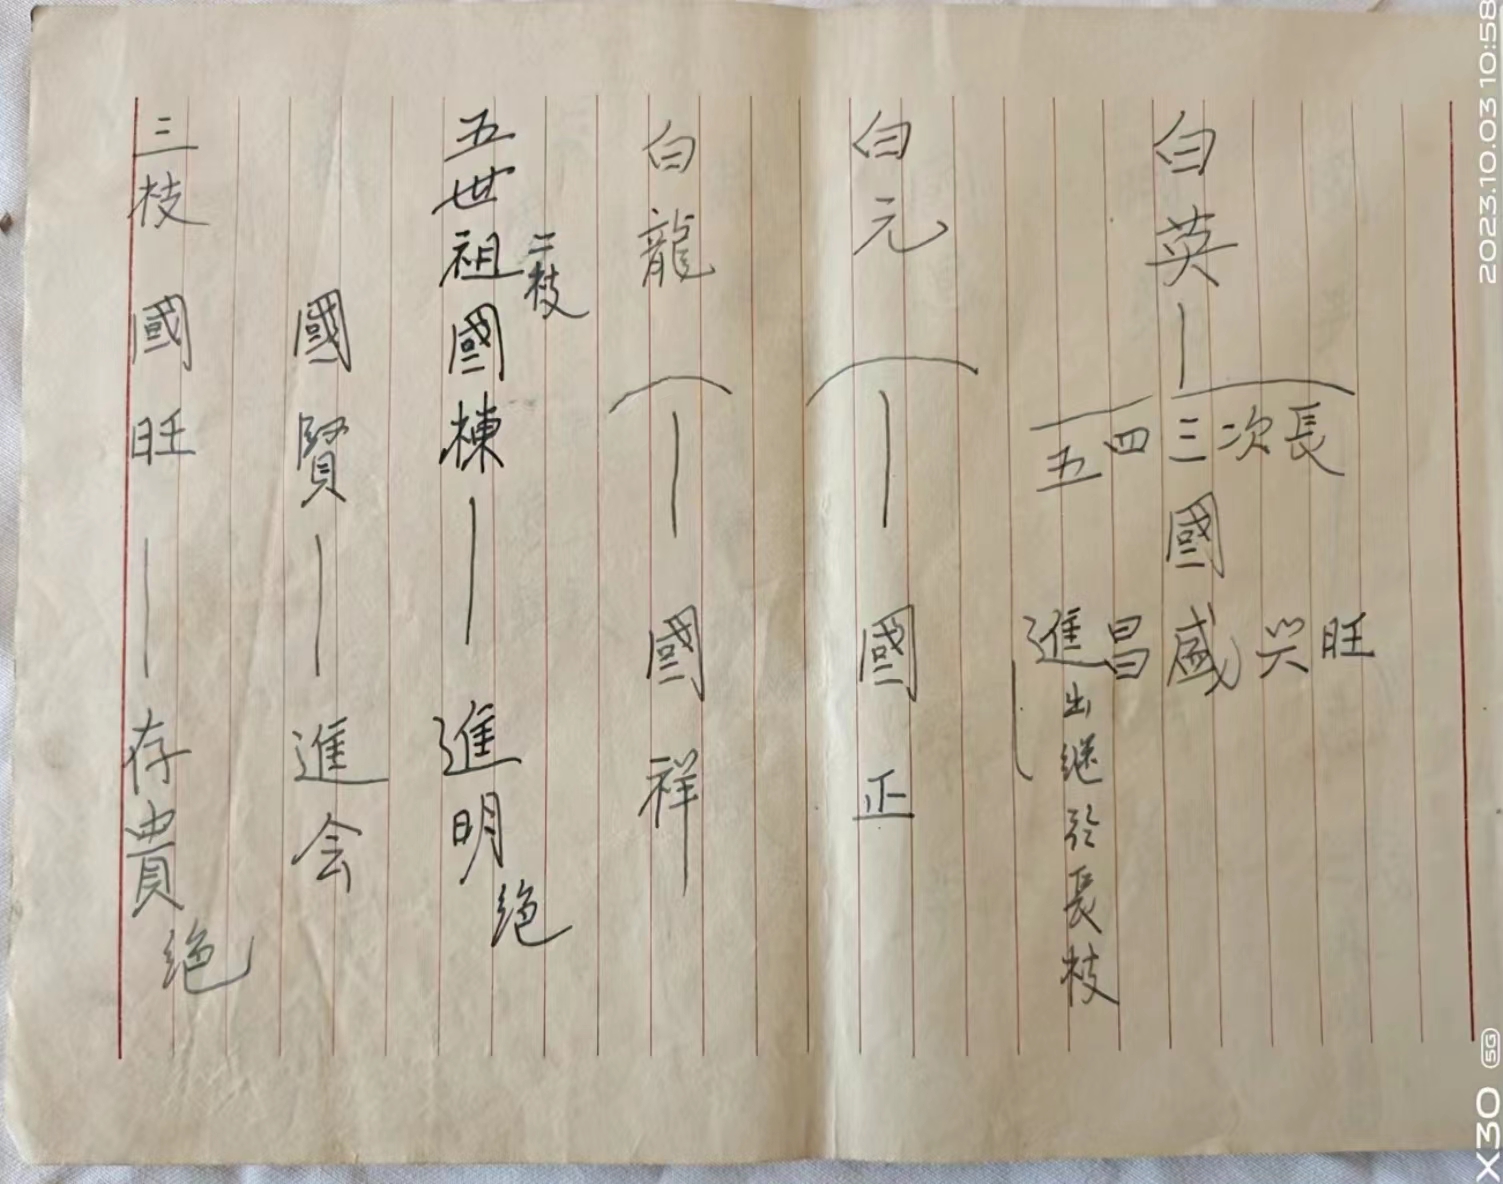 白英
長 次 三 四 五
國
旺 兴 盛 昌 進
出继於長枝
白元 國正
白龍 國祥
五世祖 二枝 國棟 進明 绝
國賢 進会
三枝 國旺 存貴 绝
2023.10.03 10:58
X30 5G